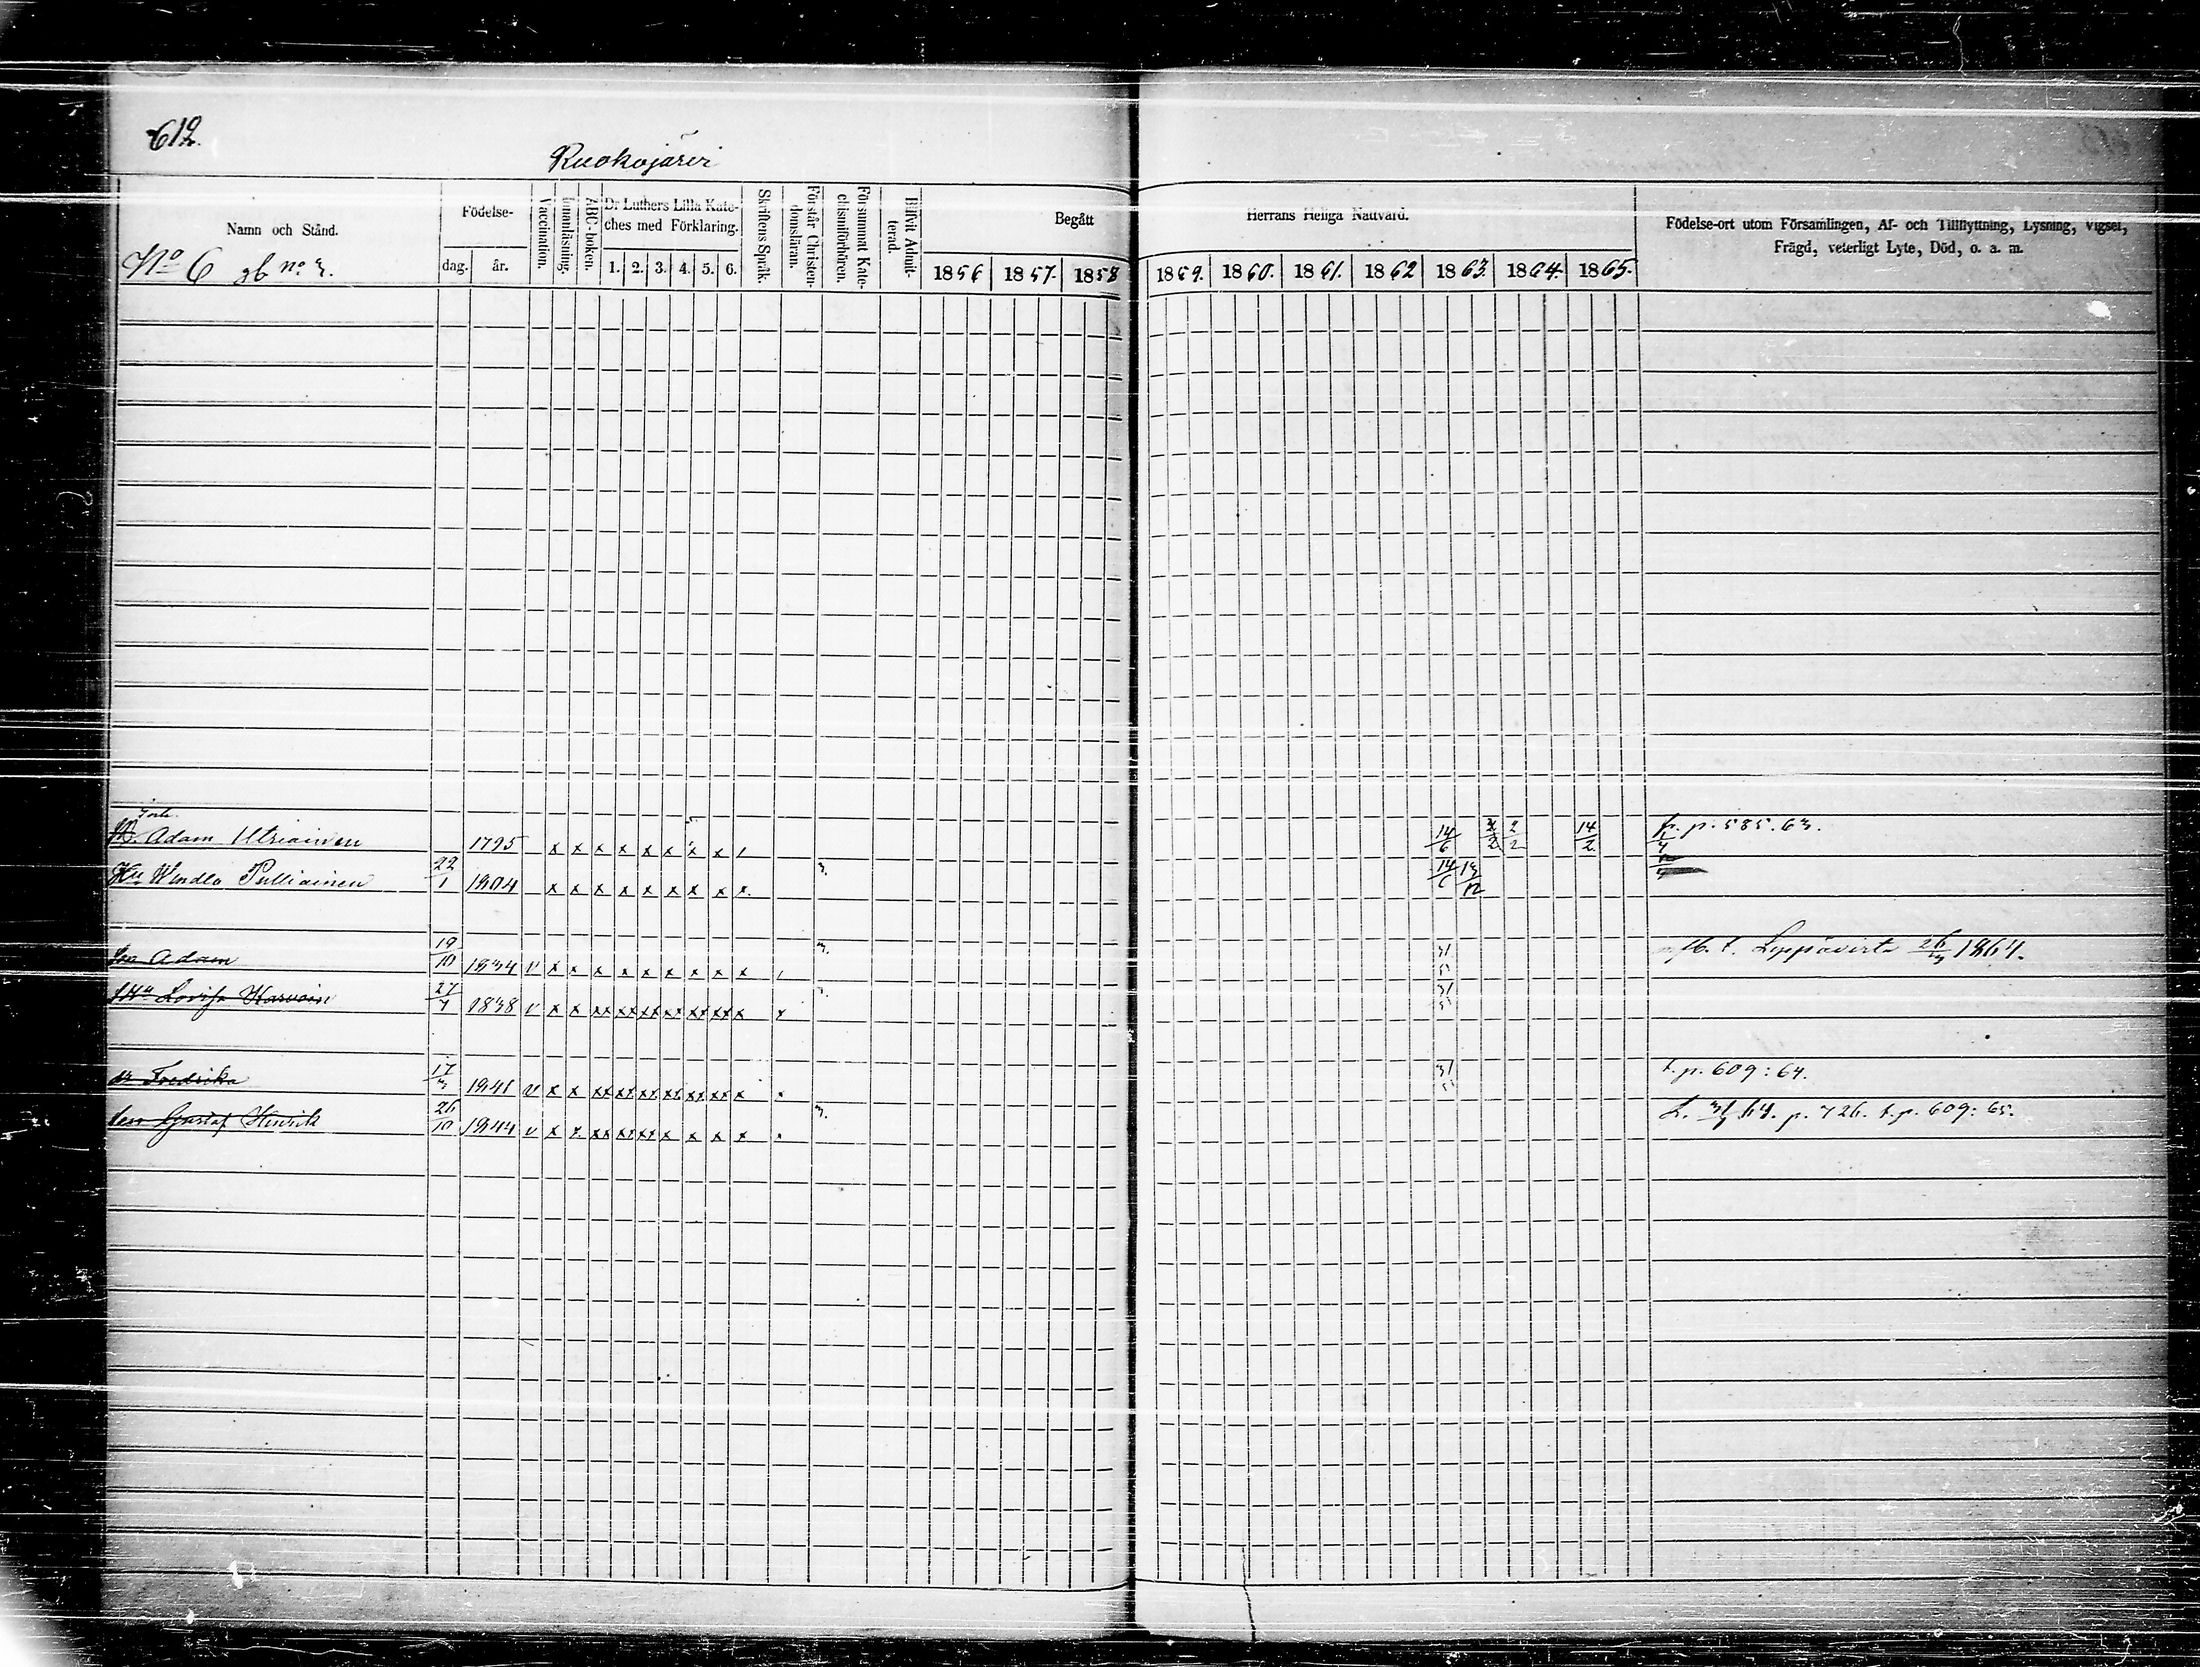 612.
Ruokojärvi
Namn och Stånd.
No 6 gb no 3.
Födelse-
dag. år.
Vaccination.
Innanläsning.
ABC-boken.
Dr Luthers Lilla Kate-
ches med Förklaring.
1. 2. 3. 4. 5. 6.
Skriftens Språk.
Förstår Christen-
domsläran.
Försummat Kate-
chismiförhören.
Blifvit Admit-
terad.
Begått
1856 1857. 1858
Herrans Heliga Nattvard.
1859. 1860. 1861. 1862 1863. 1864. 1865.
Födelse-ort utom Församlingen, Af- och Tillflyttning, Lysning, Vigsel,
Frägd, veterligt Lyte, Död, o. a. m.
Adam Utriainen 1795 x x x x x x x x 14/6 2/2 14/2 fr. p. 585. 63.
Hu Wendla Pulliainen 22/1 1804 x x x x x x x x x 3. 14/6 13/12
Son Adam 19/10 1834 v x x x x x x x x x 3. 31/5 t. Leppävirta 1864.
Hu Lovisa Karvain 27/7 1838 v x x xx xx xx xx xx xx x x 31/5
dr Fredrika 17/3 1841 v x x xx xx xx xx xx xx x 31/5 t. p. 609: 64.
son Gustaf Henrik 26/10 1844 v x x xx xx xx x x x x 3. 64. p. 726. t. p. 609: 65.